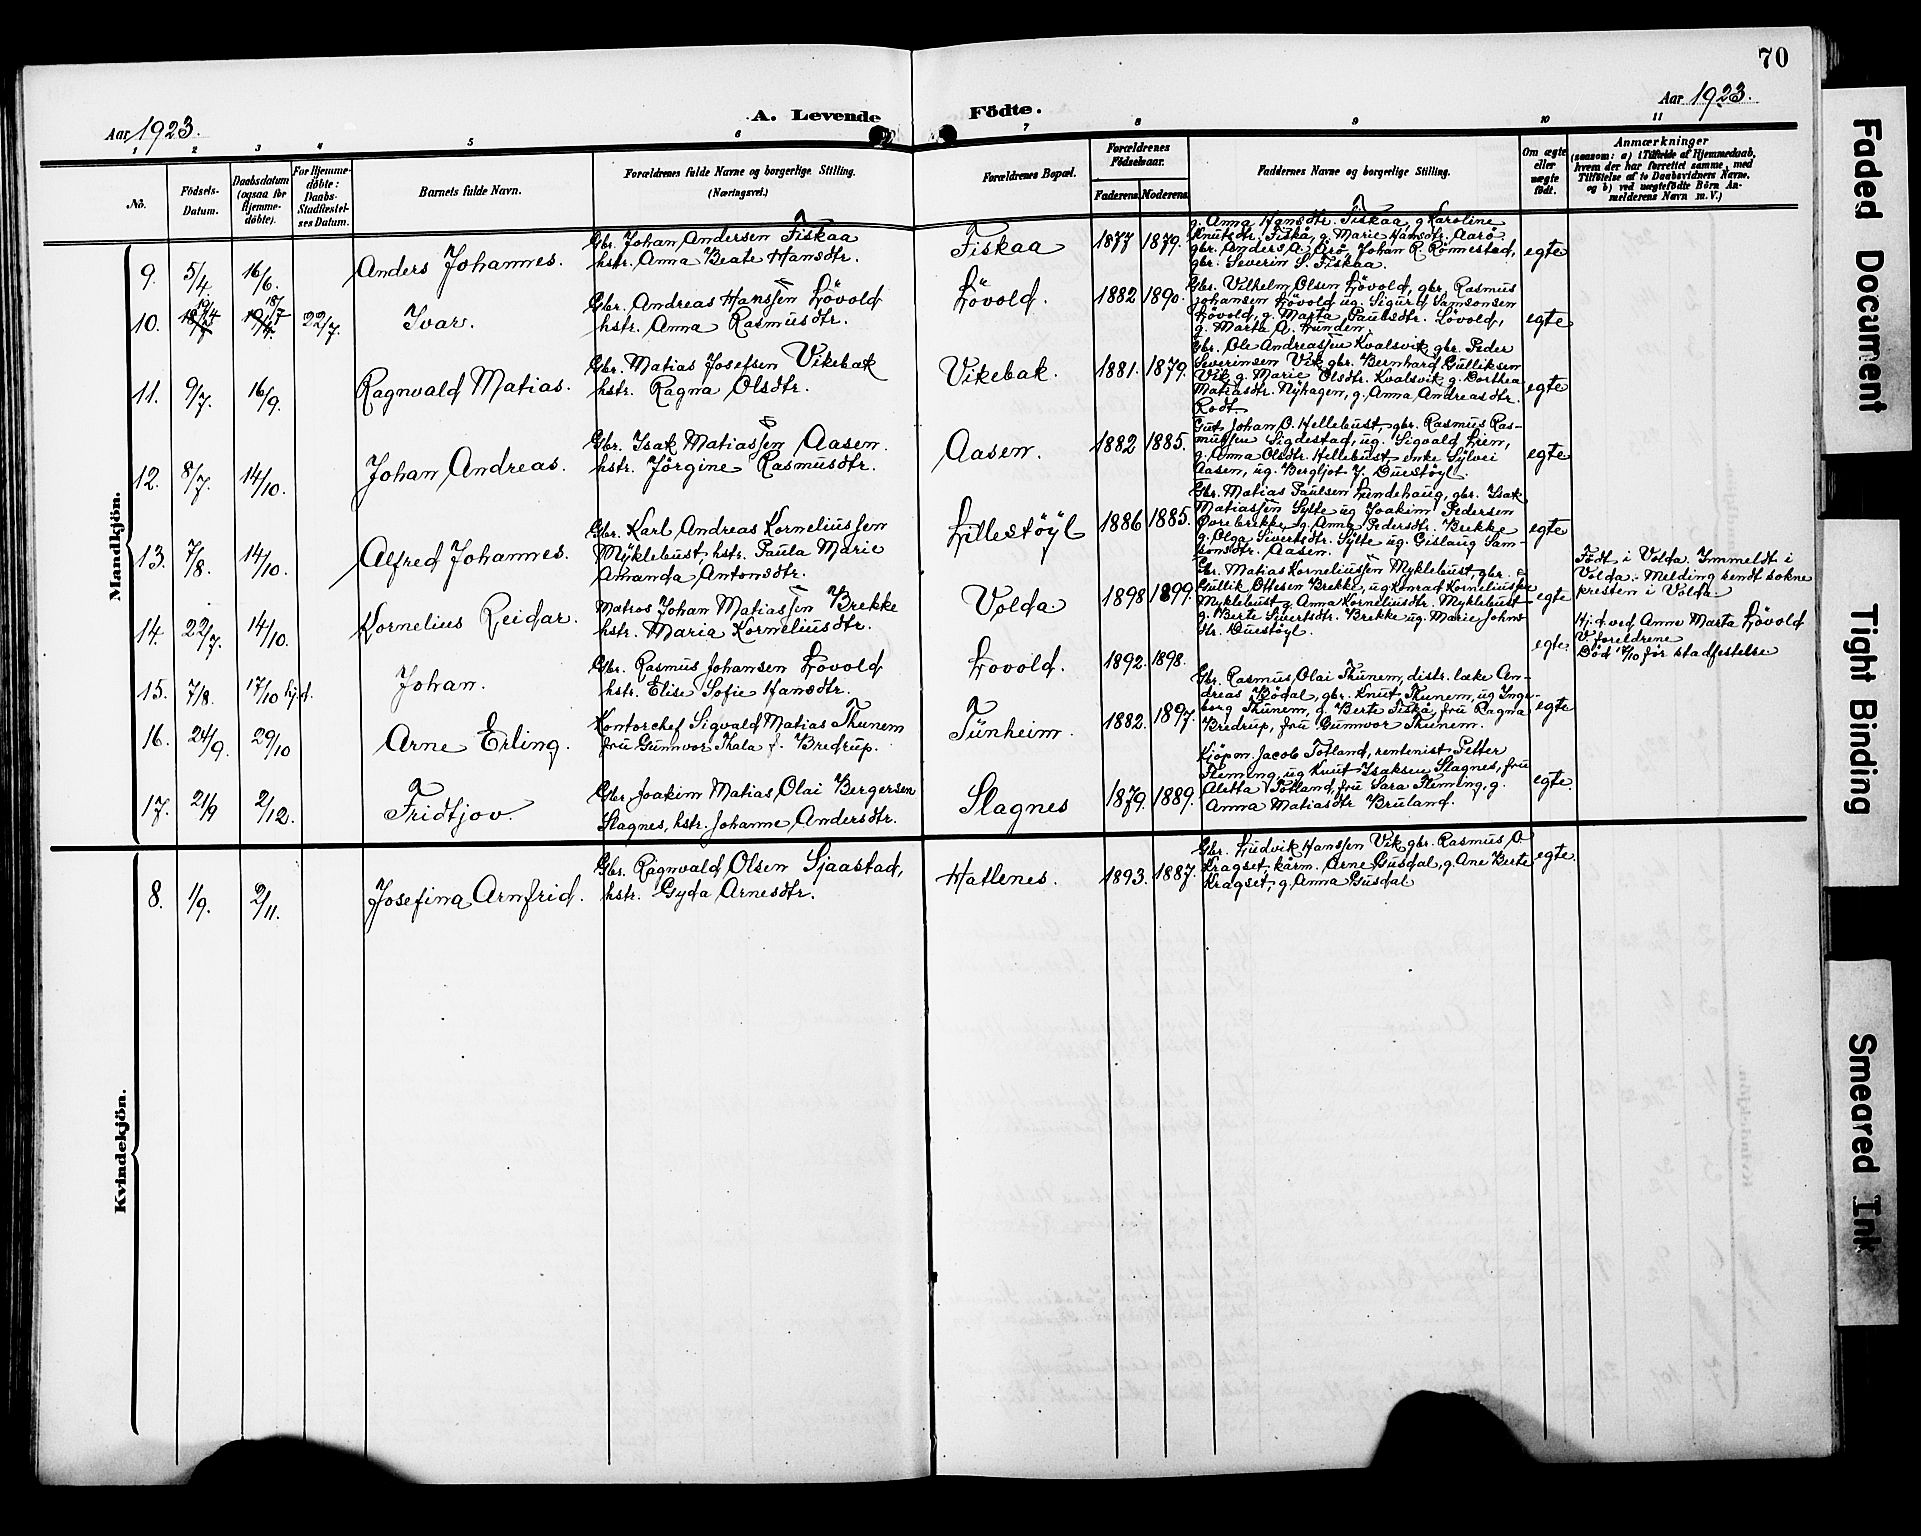 70
Aar 1923.
A. Levende
Födte.
Aar 1923.
1 2 3 4 5 6 7 8 9 10 11
Nô.
Födsels-
Datum.
Daabsdatum
(ogsaa for
Hjemme-
döbte).
For Hjemme-
döbte:
Daabs-
Stadfæstel-
ses Datum.
Barnets fulde Navn.
Forældrenes fulde Navne og borgerlige Stilling.
(Næringsvei.)
Forældrenes Bopæl.
Forældrenes
Födselsaar.
Faderens. Moderens.
Faddernes Navne og borgerlige Stilling.
Om ægte
eller
uægte
födt.
Anmærkninger
(saasom: a) i Tilfælde af Hjemmedaab,
hvem der har forrettet samme, med
Tilföielse af to Daabsvidners Navne,
og b) ved uægtefödte Börn An-
melderens Navn m. V.)
Mandkjön.
9. 5/4. 16/6. Anders Johannes.
Gbr. Johan Andersen Fiskaa
hstr. Anna Beate Hansdtr.
Fiskaa 1877 1879.
g. Anna Hansdtr. Fiskaa, g Karoline
Knutsdtr. Fiskå, g. Marie Hansdtr. Aarö
gbr. Anders A. Årö, Johan R. Römestad,
gbr. Severin S. Fiskaa.
egte
10. 19/4 18/7 22/7. Ivar.
Gbr. Andreas Hanssen Lövold
hstr. Anna Rasmusdtr.
Lövold. 1882 1890.
Gbr. Vilhelm Olsen Lövold, gbr. Rasmus
Johansen Lövold ug. Sigurd Samsonsen
Lövold, g. Marta Paulsdtr. Lövold,
g. Marta A. Lunden.
egte
11. 9/7. 16/9. Ragnvald Matias.
Gbr. Matias Josefsen Vikebak
hstr. Ragna Olsdtr.
Vikebak. 1881. 1879.
Gbr. Ole Andreassen Kvalsvik gbr. Peder
Severinsen Vik, gbr. Bernhard Gulliksen
Vik g. Marie Olsdtr. Kvalsvik g. Dorthea
Matiasdtr. Nyhagen, g. Anna Andreasdtr.
Rodt.
egte
12. 8/7. 14/10. Johan Andreas.
Gbr. Isak Matiassen Aasen.
hstr. Jörgine Rasmusdtr.
Aasen. 1882 1885.
Gut Johan O. Hellebust, gbr. Rasmus Ras-
mussen Sigdestad, ug. Sigvald Lien,
g. Anna Olsdtr. Hellebust, enke Sylvei
Aasen, ug. Bergljot J. Duestöyl.
egte
13. 7/8. 14/10. Alfred Johannes.
Gbr. Karl Andreas Korneliussen
Myklebust, hstr. Paula Marie
Amanda Antonsdtr.
Lillestöyl 1886 1885.
Gbr. Matias Paulsen Lundehaug, gbr. Isak
Matiassen Sylte ug Joakim Pedersen
Övrebrekke, g. Anna Pedersdtr. Brekke
g. Olga Sivertsdtr. Sylte ug. Gislaug Sam-
sonsdtr. Aasen.
egte
14. 22/7. 14/10. Kornelius Reidar.
Matros Johan Matiassen Brekke
hstr. Maria Korneliusdtr.
Volda 1898 1899.
Gbr. Matias Korneliussen Myklebust, gbr.
Gullik Ottesen Brekke, ug Konrad Korneliussen
Myklebust g. Anna Korneliusdtr. Myklebust
g. Berte Sivertsdtr. Brekke ug. Marie Johns-
dtr. Duestöyl.
egte
Födt i Volda. Innmeldt i
Volda. Melding sendt sokne
presten i Volda
15. 7/8. 17/10 hj.d. Johan.
Gbr. Rasmus Johansen Lövold
hstr. Elise Sofie Hansdtr.
Lovold. 1892. 1898.
egte
Hj.d. ved Anne Marta Lövold
V. foreldrene
Död 18/10 för stadfestelse
16. 24/9. 29/10 Arne Erling.
Kontorchef Sigvald Matias Thunem
frü Gunnvor Thala f. Bredrup.
Tünheim. 1882. 1897.
Gbr. Rasmus Olai Thunem, distr. læke An-
dreas Bödal, gbr. Knut Thunem, ug Inge-
borg Thunem, g. Berte Fiskå, frü Ragna
Bredrup, frü Gunnvor Thunem.
egte
17. 21/9 2/12. Fridtjov.
Gbr Joakim Matias Olai Bergersen
Slagnes, hstr. Johanne Andersdtr.
Slagnes 1879. 1889.
Kjöpm. Jacob Totland, rentenist Petter
Fleming, ug Knut Isaksen Slagnes, frü
Aletta Totland, frü Sara Fleming, g.
Anna Matiasdtr Bruland.
egte.
Kvindekjön.
8. 1/9. 2/11. Josefina Arnfrid.
Gbr. Ragnvald Olsen Sjaastad,
hstr. Gyda Arnesdtr.
Hatlenes. 1893. 1887.
Gbr. Ludvik Hanssen Vik gbr. Rasmus O
Kragset, kårm. Arne Gusdal, g. Ane Berte
Kragset, g. Anna Gusdal
egte.
Faded Document
Tight Binding
Smeared Ink